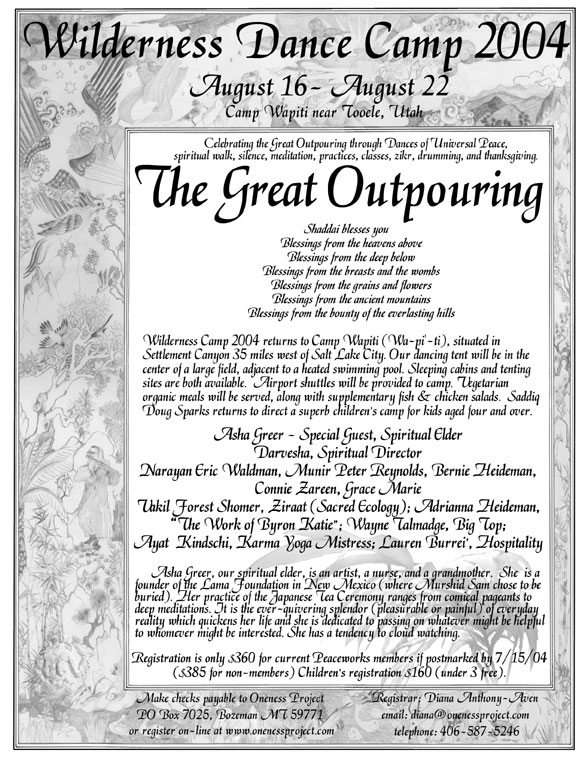 Wilderness Dance Camp 2004
August 16- August 22
Camp Wapiti near Tooele, Utah
Celebrating the Great Outpouring through Dances of Universal Peace,
spiritual walk, silence, meditation, practices, classes, zikr, drumming, and thanksgiving.
The Great Outpouring
Shaddai blesses you
Blessings from the heavens above
Blessings from the deep below
Blessings from the breasts and the wombs
Blessings from the grains and flowers
Blessings from the ancient mountains
Blessings from the bounty of the everlasting hills
Wilderness Camp 2004 returns to Camp Wapiti (Wa-pi'-ti), situated in
Settlement Canyon 35 miles west of Salt Lake City. Our dancing tent will be in the
center of a large field, adjacent to a heated swimming pool. Sleeping cabins and tenting
sites are both available. Airport shuttles will be provided to camp. Vegetarian
organic meals will be served, along with supplementary fish & chicken salads. Saddiq
Doug Sparks returns to direct a superb children's camp for kids aged four and over.
Asha Greer - Special Guest, Spiritual Elder
Darvesha, Spiritual Director
Narayan Eric Waldman, Munir Peter Reynolds, Bernie Heideman,
Connie Zareen, Grace Marie
Vakil Forest Shomer, Ziraat (Sacred Ecology); Adrianna Heideman,
"The Work of Byron Katie"; Wayne Talmadge, Big Top;
Ayat Kindschi, Karma Yoga Mistress; Lauren Burrei', Hospitality
Asha Greer, our spiritual elder, is an artist, a nurse, and a grandmother. She is a
founder of the Lama Foundation in New Mexico (where Murshid Sam chose to be
buried). Her practice of the Japanese Tea Ceremony ranges from comical pageants to
deep meditations. It is the ever-quivering splendor (pleasurable or painful) of everyday
reality which quickens her life and she is dedicated to passing on whatever might be helpful
to whomever might be interested. She has a tendency to cloud watching.
Registration is only $360 for current Peaceworks members if postmarked by 7/15/04
($385 for non-members) Children's registration $160 (under 3 free).
Make checks payable to Oneness Project
PO Box 7025, Bozeman MT 59771
or register on-line at www.onenessproject.com
Registrar; Diana Anthony-Aven
email: diana@onenessproject.com
telephone: 406-587-5246